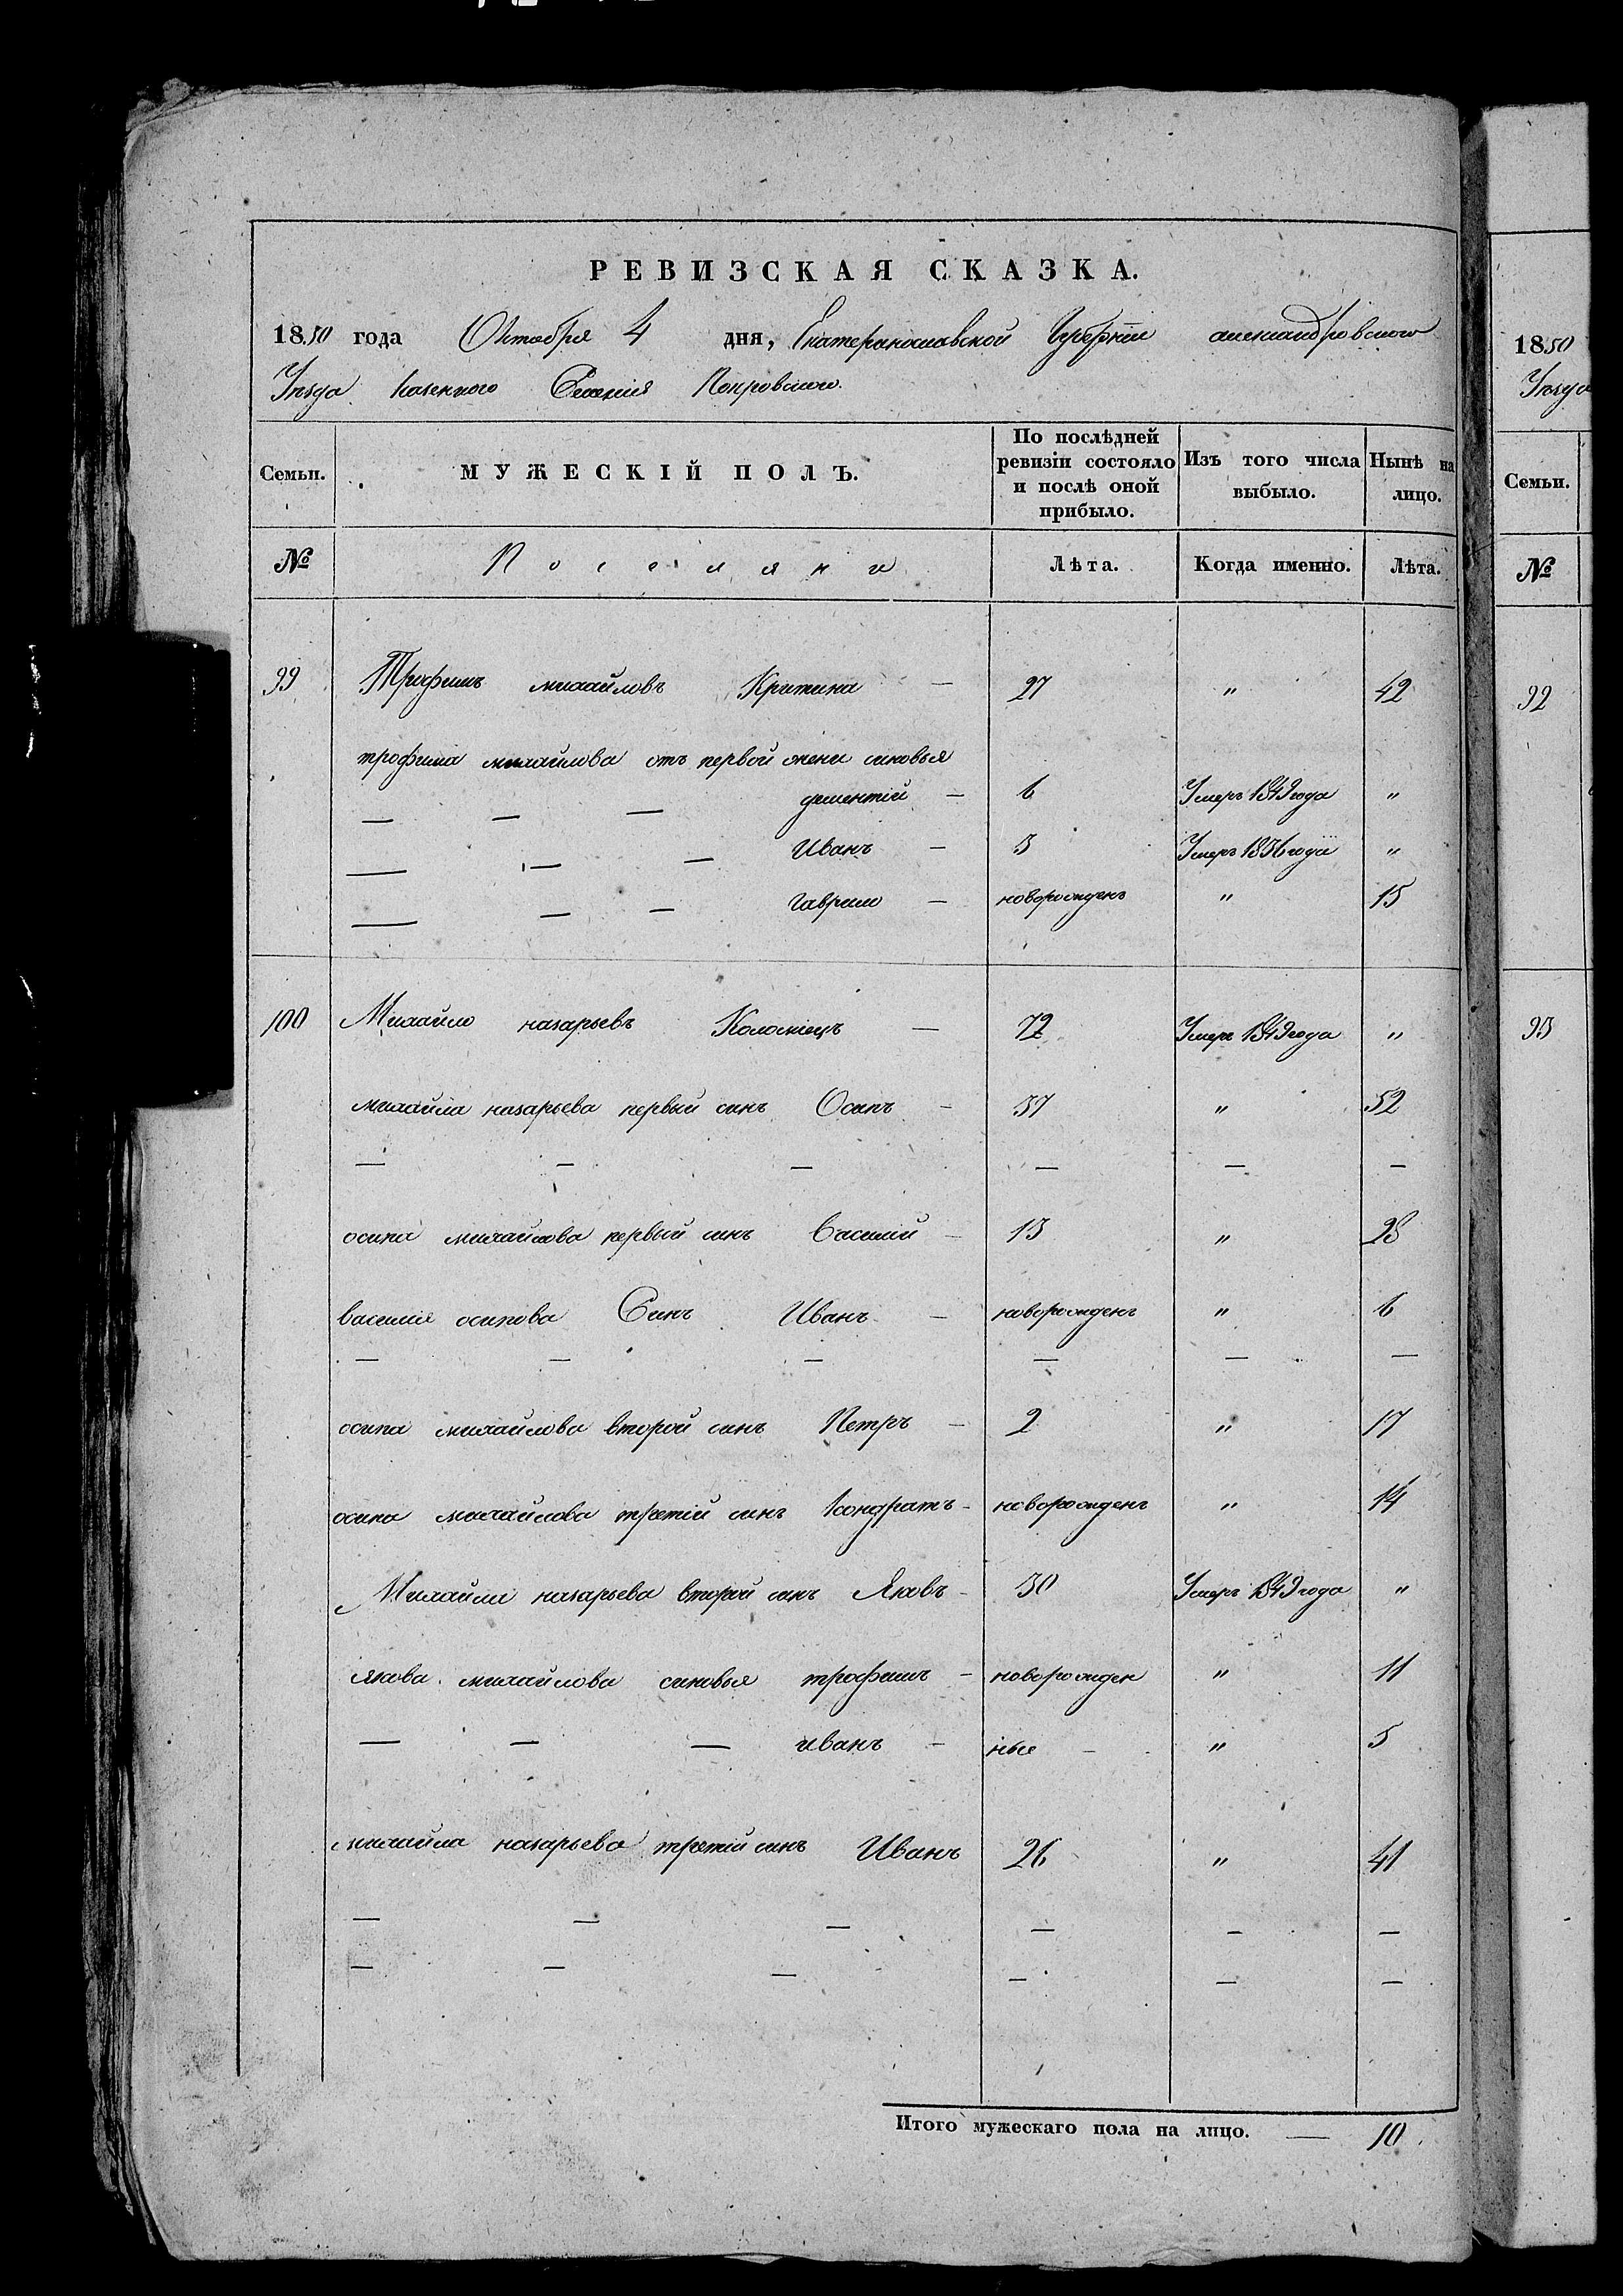 РЕВИЗСКАЯ СКАЗКА.
1850 года Октября 4 дня, Екатеринославской Губерніи александровского
Уѣзда казенного Селенія Покровского.
Семьи. МУЖЕСКІЙ ПОЛЪ. По послѣдней ревизіи состояло и послѣ оной прибыло. Изъ того числа выбыло. Нынѣ на лицо.
№ Поселяни Лѣта. Когда именно. Лѣта.
99 Трофимъ михайловъ — 27 " 42
трофима михайлова отъ первой жени синовья
— — — дементій — 6 Умеръ 1849 года "
— — — Иванъ — 3 Умеръ 1836 года "
— — — Гаврило — новорожденъ " 15
100 Михайло назарьевъ Коломіецъ — 72 Умеръ 1849 года "
михайла назарьева первый синъ Осипъ — 37 " 52
— — — — — —
осипа михайлова первый синъ Василій — 13 " 28
василія осипова Синъ Иванъ — новорожденъ " 6
— — — — — —
осипа михайлова второй синъ Петръ — 2 " 17
осипа михайлова третій синъ Кондратъ — новорожденъ " 14
Михайла назарьева второй синъ Яковъ — 30 Умеръ 1849 года "
якова михайлова синовья трофимъ — новорожден " 11
— — — иванъ — ные — " 5
михайла назарьева третій синъ Иванъ 26 " 41
— — — — — —
— — — — — —
Итого мужескаго пола на лицо. — 10
1850
Уѣзда
Семьи.
№
92
93